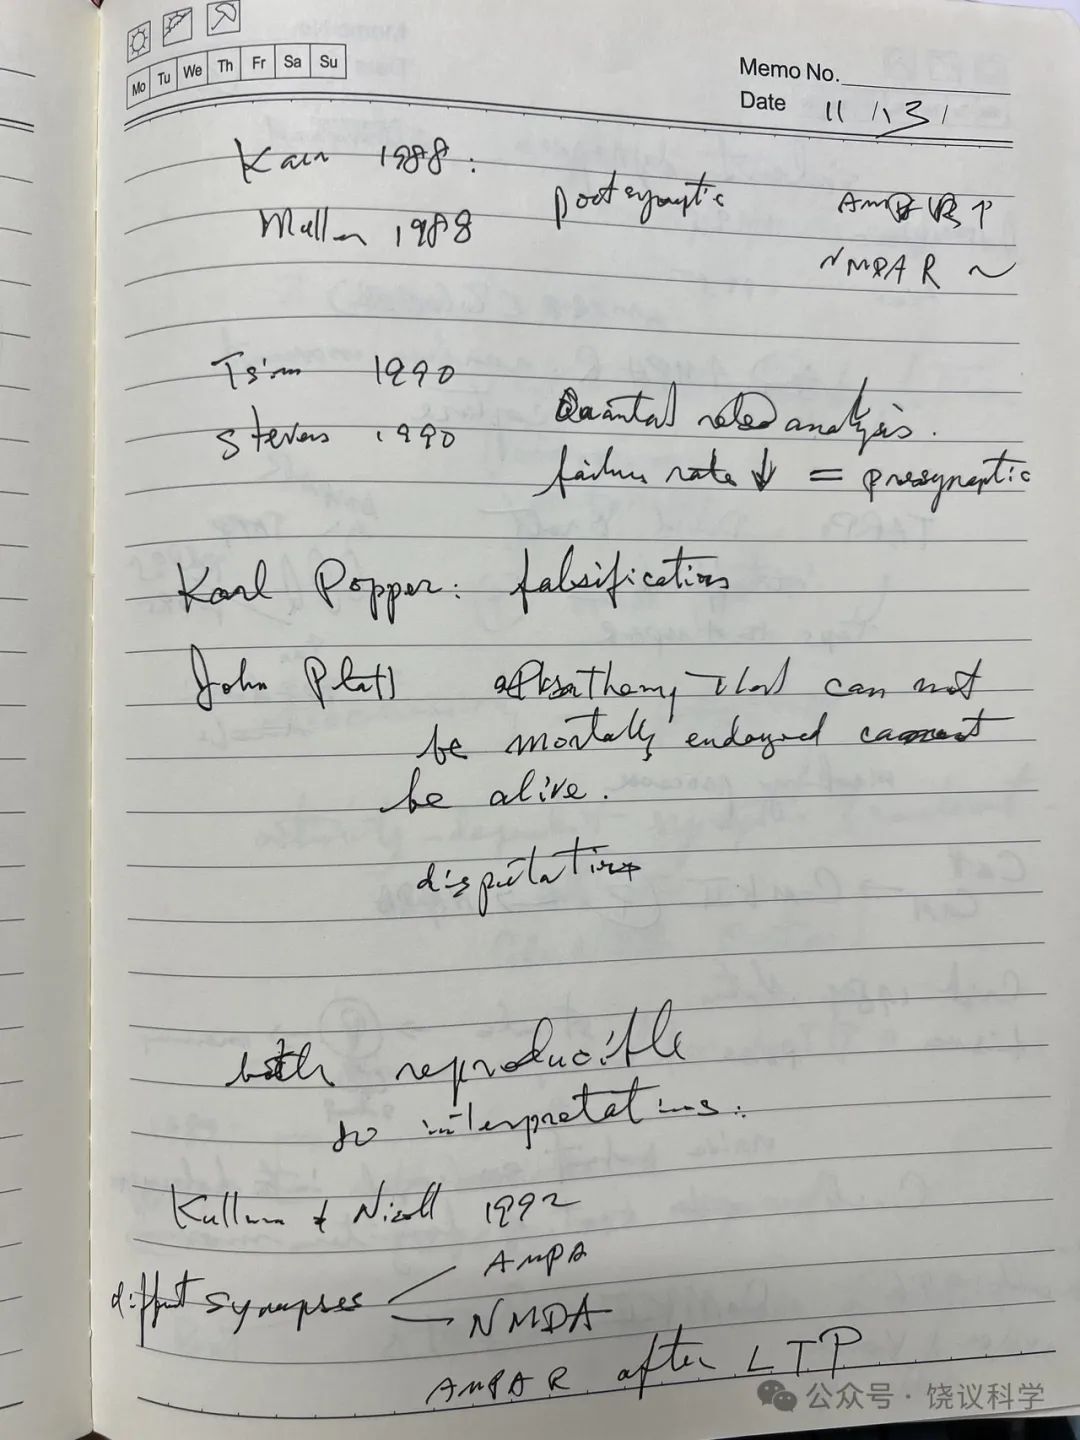 Mo Tu We Th Fr Sa Su
Memo No.
Date 11/13/
Kaur 1988:
Mullen 1988
postsynaptic AMPAR ↑
NMDAR ~
Tsien 1990
Stevens 1990
Quantal analysis.
failure rate ↓ = presynaptic
Karl Popper: falsification
John Platt that can not
be mortally endangered cannot
be alive.
disputation
both reproducible
so interpretations:
Kullman & Nicoll 1992
synapses AMPA
NMDA
AMPAR after LTP
公众号 · 饶议科学